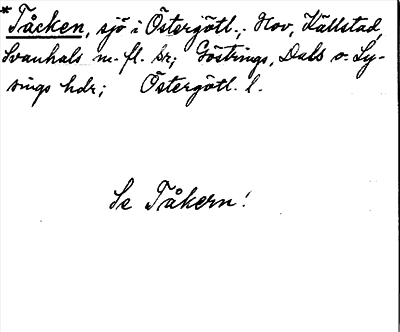 *Tåcken, sjö i Östergötl.; Hov, Källstad,
Svanhals m. fl. sr; Göstrings, Dals o. Ly-
sings hdr; Östergötl. l.
Se Tåkern!